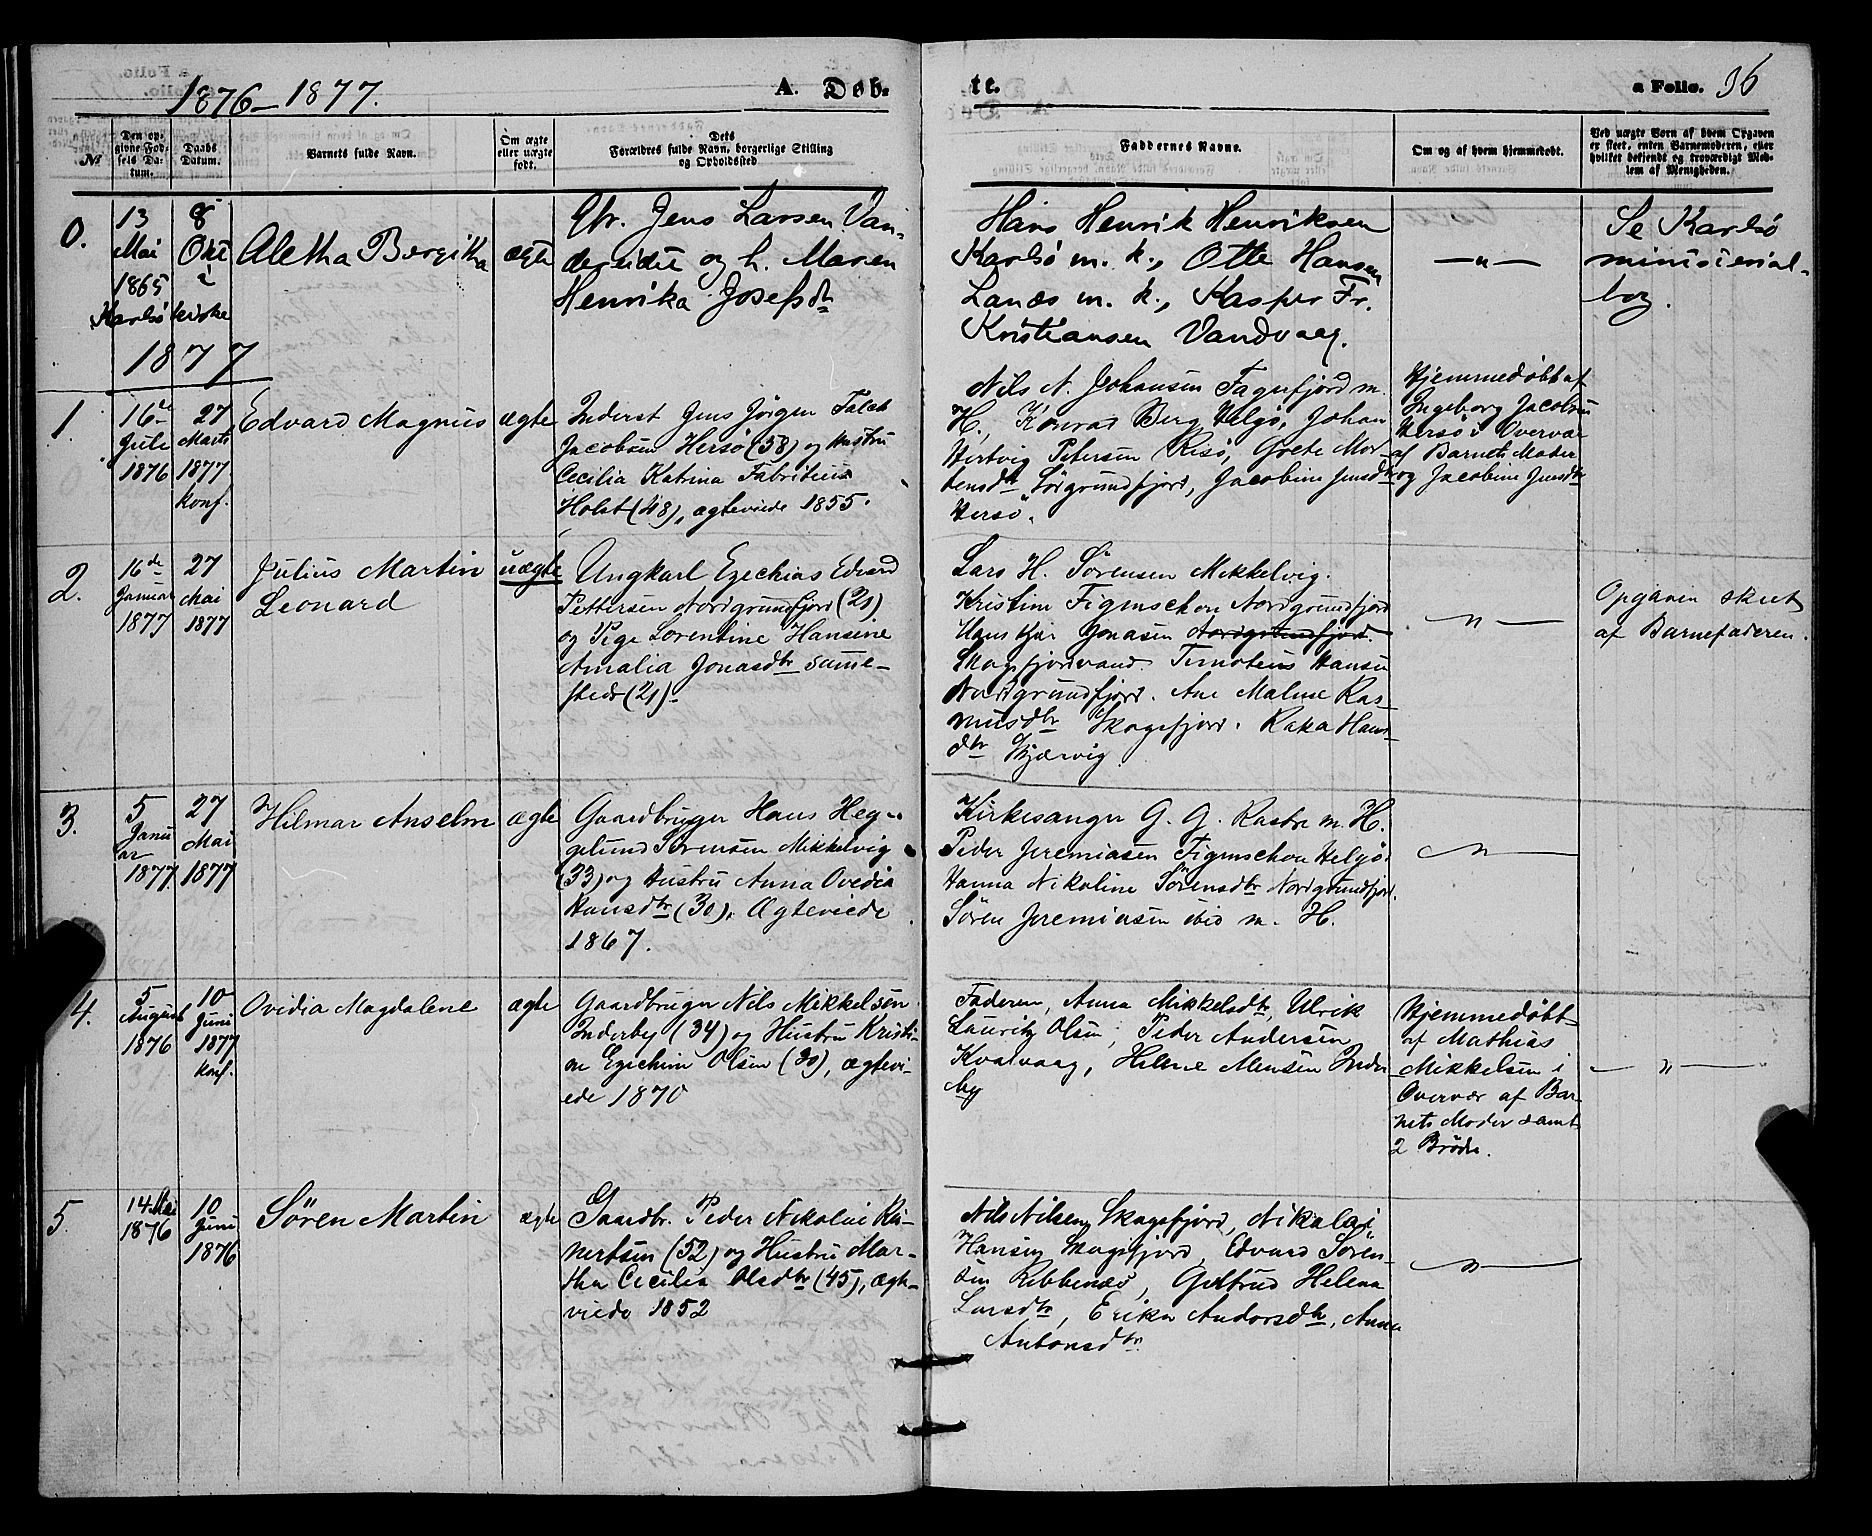 1876-1877.
A. Döb-
te.
a Folio. 36
№
Den op-
givne Fød-
sels Da-
tum.
Daabs
Datum.
Barnets fulde Navn.
Om ægte
eller uægte
født.
Dets
Forældres fulde Navn, borgerlige Stilling
og Opholdssted
Faddernes Navne.
Om og af hvem hjemmedøbt.
Ved uægte Børn af hvem Opgaven
er skeet, enten Barnemoderen, eller
hvilket bekjendt og troværdigt Med-
lem af Menigheden.
0.
13
Mai
1865
8
Okt
i
Karlsö kirke
Aletha Bergitha
ægte
Gbr. Jens Larsen Van-
dersidet og h. Maren
Henrika Josefsdr
Hans Henrik Henriksen
Karlsö m. k., Otte Hansen
Lanæs m. k., Kasper Fr.
Kristiansen Vandvaag.
—"—
Se Karlsö
ministerial-
bog.
1877
1.
16de
Juli
1876
27
Marts
1877
konf.
Edvard Magnus
ægte
Inderst Jens Jörgen Falck
Jacobsen Hersö (58) og Hustru
Cecilia Katrina Fabritius
Holst (48), ægteviede 1855.
Nils N. Johansen Fagerfjord m.
H., Konrad Berg Helgö, Johan
Hertvig Petersen Risö, Grete Mor-
tensdtr Sörgrundfjord, Jacobine Jensdtr
Hersö.
Hjemmedöbt af
Ingeborg Jacobsen
Hersö i Overvær
af Barnets Moder
og Jacobine Jensdtr
2.
16de
Januar
1877
27
Mai
1877
Julius Martin
Leonard
uægte
Ungkarl Ezechias Edvard
Pettersen Nordgrundfjord (21)
og Pige Lorentine Hansine
Amalia Jonasdtr samme-
steds (21).
Lars H. Sörensen Mikkelvig.
Kristine Figenschou Nordgrundfjord
Hans Jonasen Nordgrundfjord.
Skogsfjordvand. Timoteus Hansen
Nordgrundfjord. Ane Maline Ras-
musdtr Skogsfjord. Raka Hans-
dtr Gjærvig.
—"—
Opgaven skeet
af Barnefaderen.
3.
5
Janu
ar
1877
27
Mai
1877
Hilmar Anselm
ægte
Gaardbruger Hans Heg-
gelund Sörensen Mikkelvig
(33) og Hustru Anna Ovedia
Hansdtr (30), Ægteviede
1867.
Kirkesanger G. G. Rastre m. H.
Peder Jeremiasen Figenschou Helgö.
Hanna Nikoline Sörensdtr Nordgrundfjord.
Sören Jeremiasen ibid m. H.
—"—
4.
5
August
1876
10
Juni
1877
konf.
Ovidia Magdalene
ægte
Gaardbruger Nils Mikkelsen
Inderby (34) og Hustru Kristi-
ne Ezechine Olsen (30), ægtevi-
ede 1870
Faderen, Anna Mikkelsdtr, Ulrik
Lauritz Olsen, Peder Andersen
Kvalvaag, Helene Mensen Inder
by
Hjemmedöbt
af Mathias
Mikkelsen i
Overvær af Bar-
nets Moder samt
2 Brödre.
—"—
5.
14 Mai
1876
10
Juni
1876
Sören Martin
ægte
Gaardbr. Peder Nikolai Rei-
nertsen (52) og Hustru Mar-
tha Cecilia Olsdtr (45), ægte-
viede 1852
Nils Nilsen, Skogsfjord, Nikolai
Hansen Skogsfjord, Edvard Sören-
sen Ribbenæs, Gjertrud Helena
Larsdtr, Erika Andorsdtr, Anna
Antonsdtr
—"—